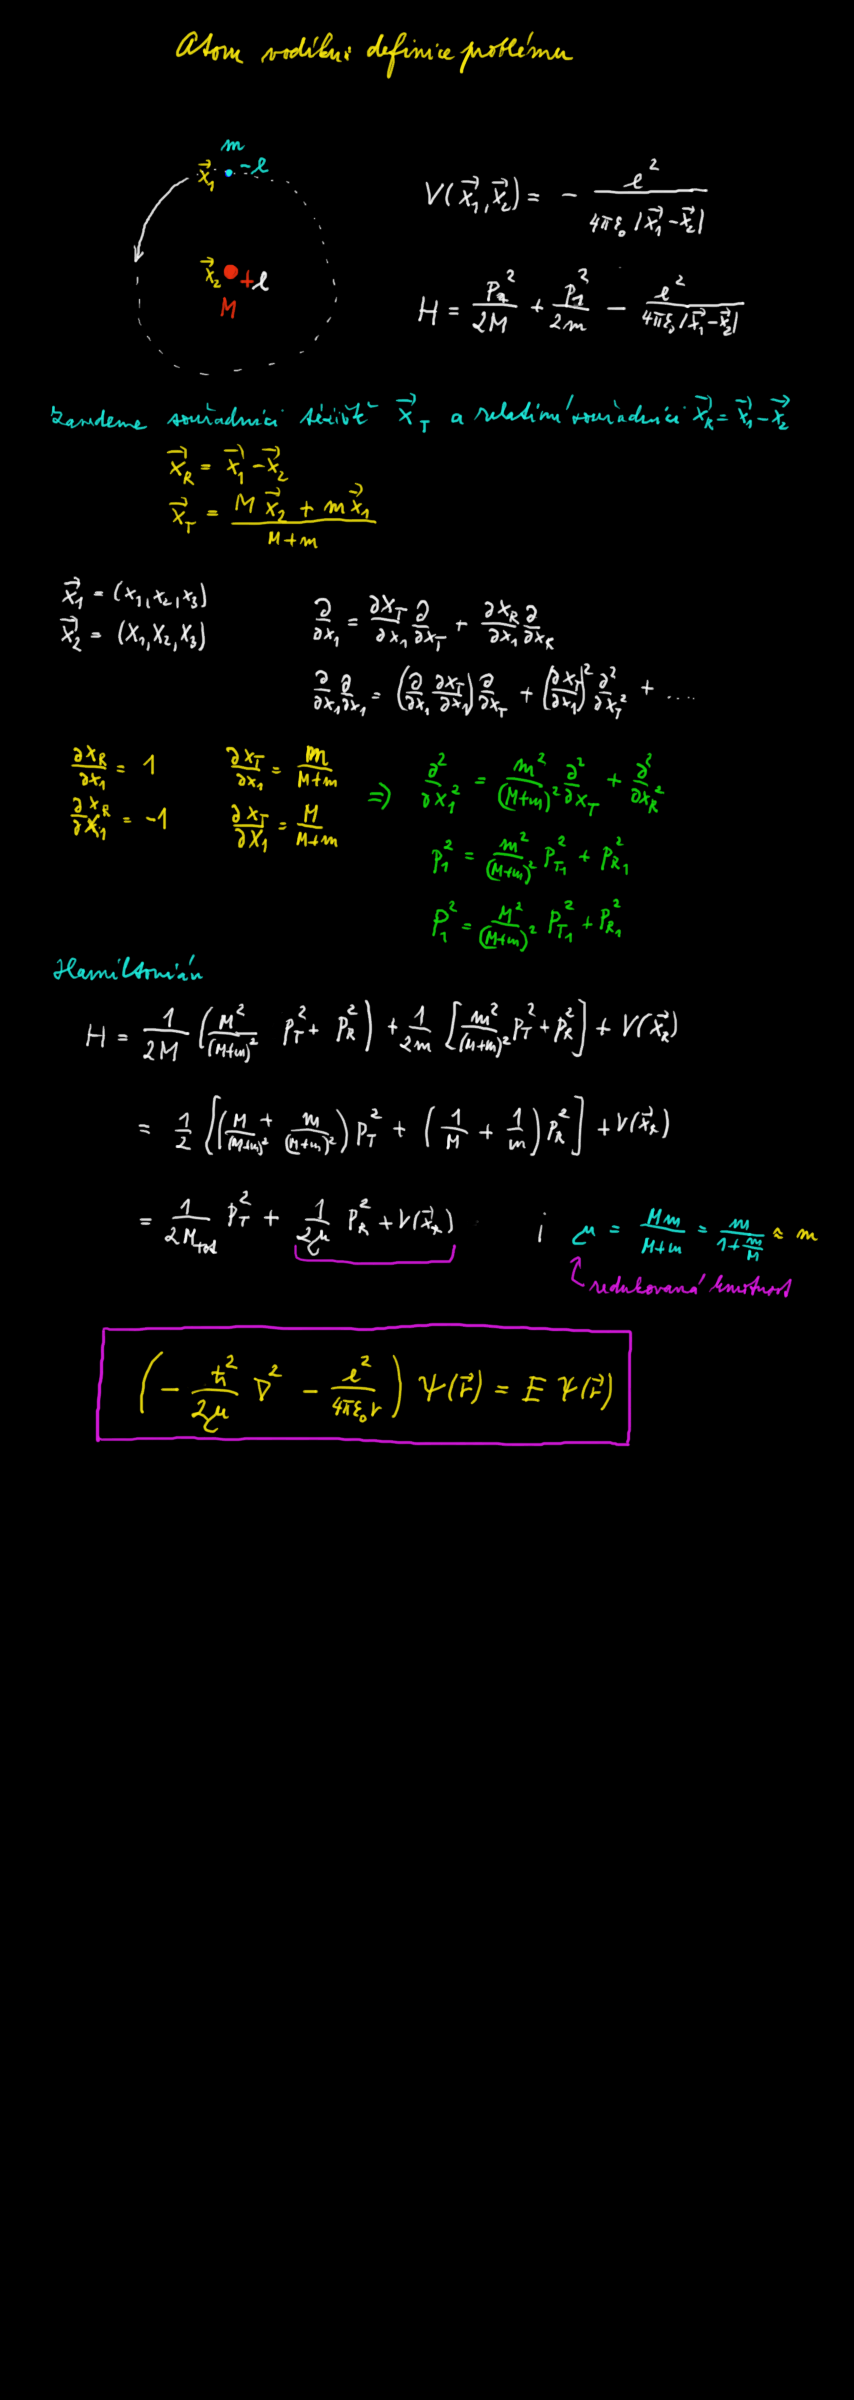 Atom vodíku: definice problému
m
x⃗₁ -e
x⃗₂ +e
M
V(x⃗₁, x⃗₂) = - e² / (4πε₀ |x⃗₁ - x⃗₂|)
H = p₂²/2M + p₁²/2m - e² / (4πε₀ |x⃗₁ - x⃗₂|)
Zavedeme souřadnici těžiště x⃗_T a relativní souřadnici x⃗_R = x⃗₁ - x⃗₂
x⃗_R = x⃗₁ - x⃗₂
x⃗_T = (M x⃗₂ + m x⃗₁) / (M+m)
x⃗₁ = (x₁, x₂, x₃)
x⃗₂ = (X₁, X₂, X₃)
∂/∂x₁ = ∂x_T/∂x₁ ∂/∂x_T + ∂x_R/∂x₁ ∂/∂x_R
∂/∂x₁ ∂/∂x₁ = (∂/∂x₁ ∂x_T/∂x₁) ∂/∂x_T + (∂x_T/∂x₁)² ∂²/∂x_T² + ....
∂x_R/∂x₁ = 1 ∂x_T/∂x₁ = m/(M+m)
∂x_R/∂X₁ = -1 ∂x_T/∂X₁ = M/(M+m)
⇒ ∂²/∂x₁² = m²/(M+m)² ∂²/∂x_T + ∂²/∂x_R²
p₁² = m²/(M+m)² p_T₁² + p_R₁²
P₁² = M²/(M+m)² p_T₁² + p_R₁²
Hamiltonián
H = 1/2M (M²/(M+m)² p_T² + p_R²) + 1/2m [m²/(M+m)² p_T² + p_R²] + V(x⃗_R)
= 1/2 [(M/(M+m)² + m/(M+m)²) p_T² + (1/M + 1/m) p_R²] + V(x⃗_R)
= 1/2M_tot p_T² + 1/2μ p_R² + V(x⃗_R) ; μ = Mm/(M+m) = m/(1 + m/M) ≈ m
redukovaná hmotnost
(- ħ²/2μ ∇² - e²/(4πε₀r)) Ψ(r⃗) = E Ψ(r⃗)